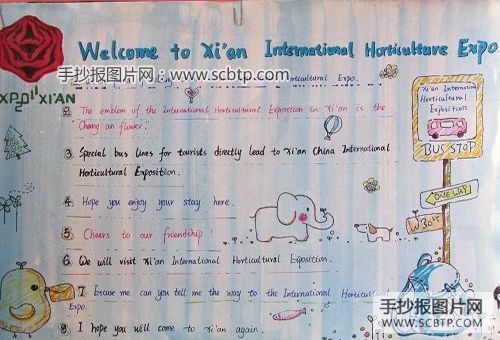 Welcome to Xi'an International Horticulture Expo
手抄报图片网：www.scbtp.com
XI'AN
Horticultural Expo.
2. The emblem of the International Horticultural Exposition in Xi'an is the
Chang an flower.
3. Special bus lines for tourists directly lead to Xi'an China International
Horticultural Exposition.
4. Hope you enjoy your stay here.
5. Cheers to our friendship!
6. We will visit Xi'an International Horticultural Exposition.
7. Excuse me, can you tell me the way to the International Horticultural
Expo.
8. I hope you will come to Xi'an again.
Xi'an Internation
Horticultural
Exposition
BUS STOP
ONE WAY
手抄报图片网
WWW.SCBTP.COM